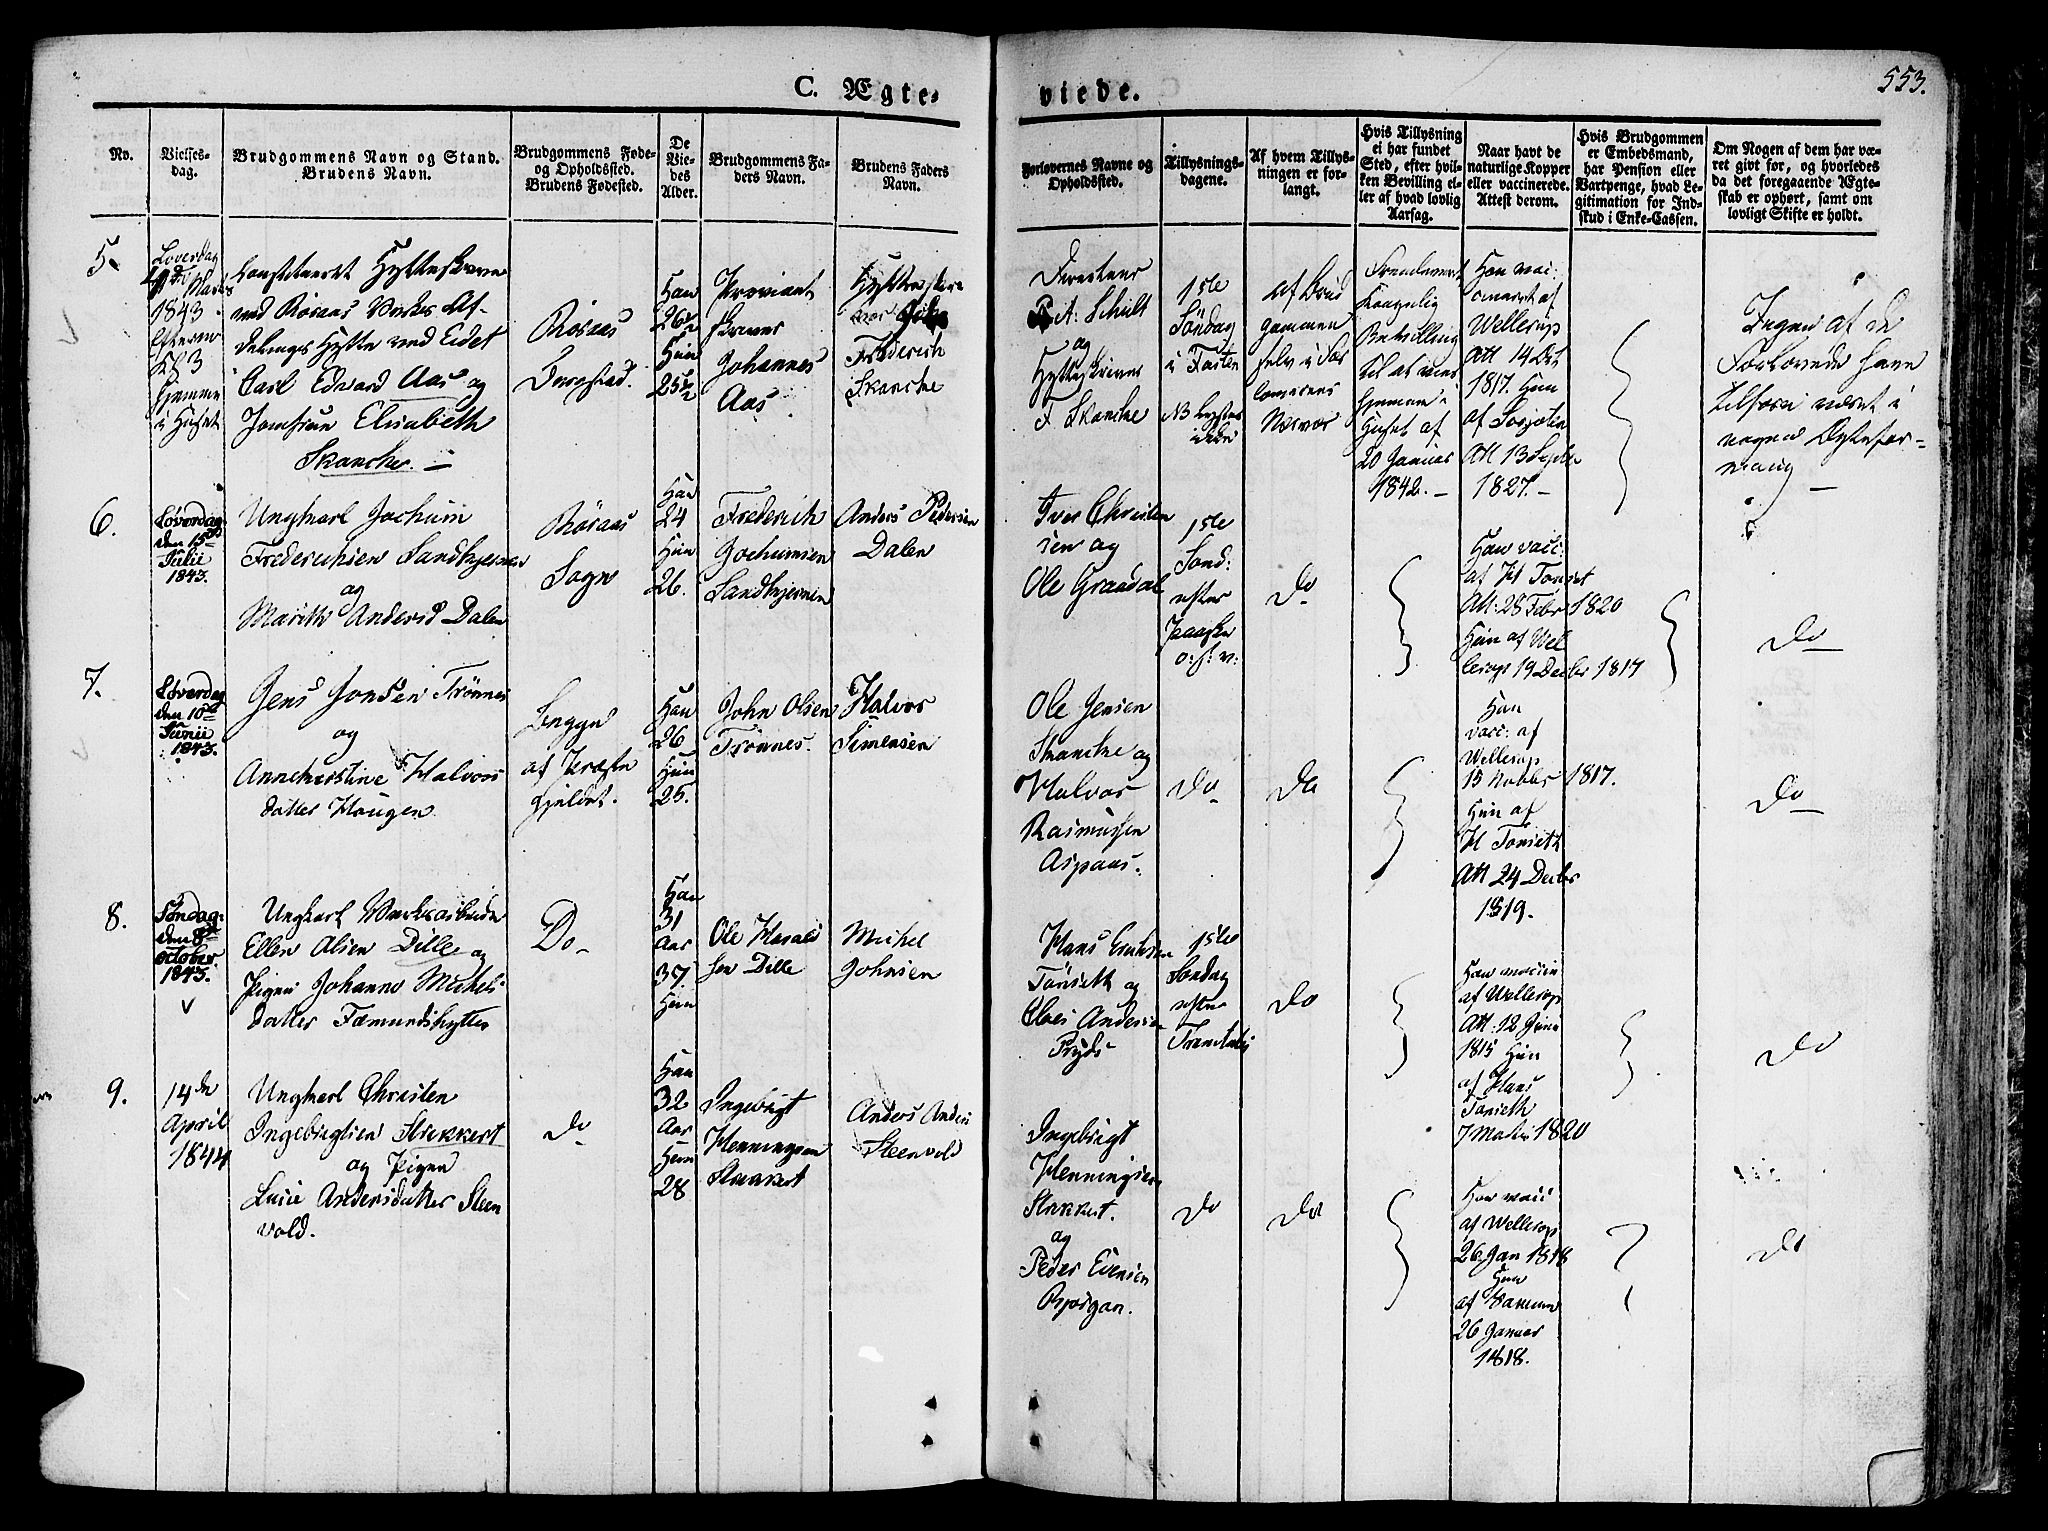 C. Ægte-
viede.
553.
No.
Vielses-
dag.
Brudgommens Navn og Stand.
Brudens Navn.
Brudgommens Føde-
og Opholdssted.
Brudens Fødested.
De
Vie-
des
Alder.
Brudgommens Fa-
ders Navn.
Brudens Faders
Navn.
Forlovernes Navne og
Opholdssted.
Tillysnings-
dagene.
Af hvem Tillys-
ningen er for-
langt.
Hvis Tillysning
ei har fundet
Sted, efter hvil-
ken Bevilling el-
ler af hvad lovlig
Aarsag.
Naar havt de
naturlige Kopper
eller vaccinerede.
Attest derom.
Hvis Brudgommen
er Embedsmand,
har Pension eller
Vartpenge, hvad Le-
gitimation for Ind-
skud i Enke-Cassen.
Om Nogen af dem har væ-
ret givt før, og hvorledes
da det foregaaende Ægte-
skab er ophørt, samt om
lovligt Skifte er holdt.
5.
Loverdag
1843
Hjemme
i Huset
Constitueret Hytteskriver
ved Röraas Værks Af-
delings Hytte ved Eidet
Carl Edvard Aas og
Jomfrue Elisabeth
Skancke. -
Röraas
Bergstad.
Han
26½
Hun
25½
Proviant
skriver
Johannes
Aas
Frederich
Skancke
Directeur
A: Schult
og
Hytteskriver
F Skancke
1ste
Söndag
i Fasten
af Brud
gommen
selv
Kongelig
Bevilling
til at vies
hjemme i
Huset af
20 Januar
1842. -
Han vac:
cineret af
Wellerop
Att 14 Dec
1817. Hun
af
Att 13 Septbr
1827. -
Ingen af de
Forlovede have
tilforn været i
nogen Egtefor-
ening -
6.
Løverdag
den 15de
Julii
1843.
Ungkarl Jochum
Frederichsen Sandkjernen
og
Marith Andersd Dalen
Röraas
Sogn
Han
24
Hun
26.
Frederich
Jochumsen
Sandkjernen
Anders Pedersen
Dalen
Iver Christen
sen og
Ole Graadal
1ste
Sond:
efter
Paaske
o: s: v:
Do
Han vacc:
af H Tönset
Att: 28 Febr 1820
Hun af Wel
lerop 19 Decbr 1817
Do
7.
Løverdag
den 10de
Junii
1843.
Jens Jonsen Trönnes
og
Annechristine Halvors
datter Haugen.
Begge
af Præste
gjeldet.
Han
26
Hun
25.
John Olsen
Trönnes.
Halvor
Simensen
Ole Jensen
Skancke og
Halvor
Rasmussen
Aspaas.
Do
Do
Han
vacc: af
Wellerop
15 Novbr 1817.
Hun af
H Tönseth
Att 24 Decbr
1819.
Do
8.
Søndag
den 8de
october
1843.
Ungkarl Værksarbeider
Ellen Olsen Dille og
Pigen Johanne Michels-
datter Fæmundshytten
Do
Han
31
Aar
37
Hun
Ole Harald
sen Dille
Michel
Johnsen
Hans Erichsen
Tönseth og
Claes Andersen
Pryds
1ste
Søndag
efter
Trinitatis
Do
Han vaccin
af Wellerop
Att: 12 Juni
1815 Hun
af Hans
Tönseth
7 1820
Do
9.
14de
April
1844
Ungkarl Christen
Ingebrigtsen Stikkert
og Pigen
Lucie Andersdatter Steen
vold.
Do
Han
32
Aar
Hun
28
Ingebrigt
Henningsen
Stikkert
Anders Anders
Steenvold
Ingebrigt
Henningsen
Stikkert.
og
Peder Evensen
Bjørgan.
Do
Do
Han vacc
af Wellerop
26 Jan 1818
Hun
af
26 Januar
1818.
Do